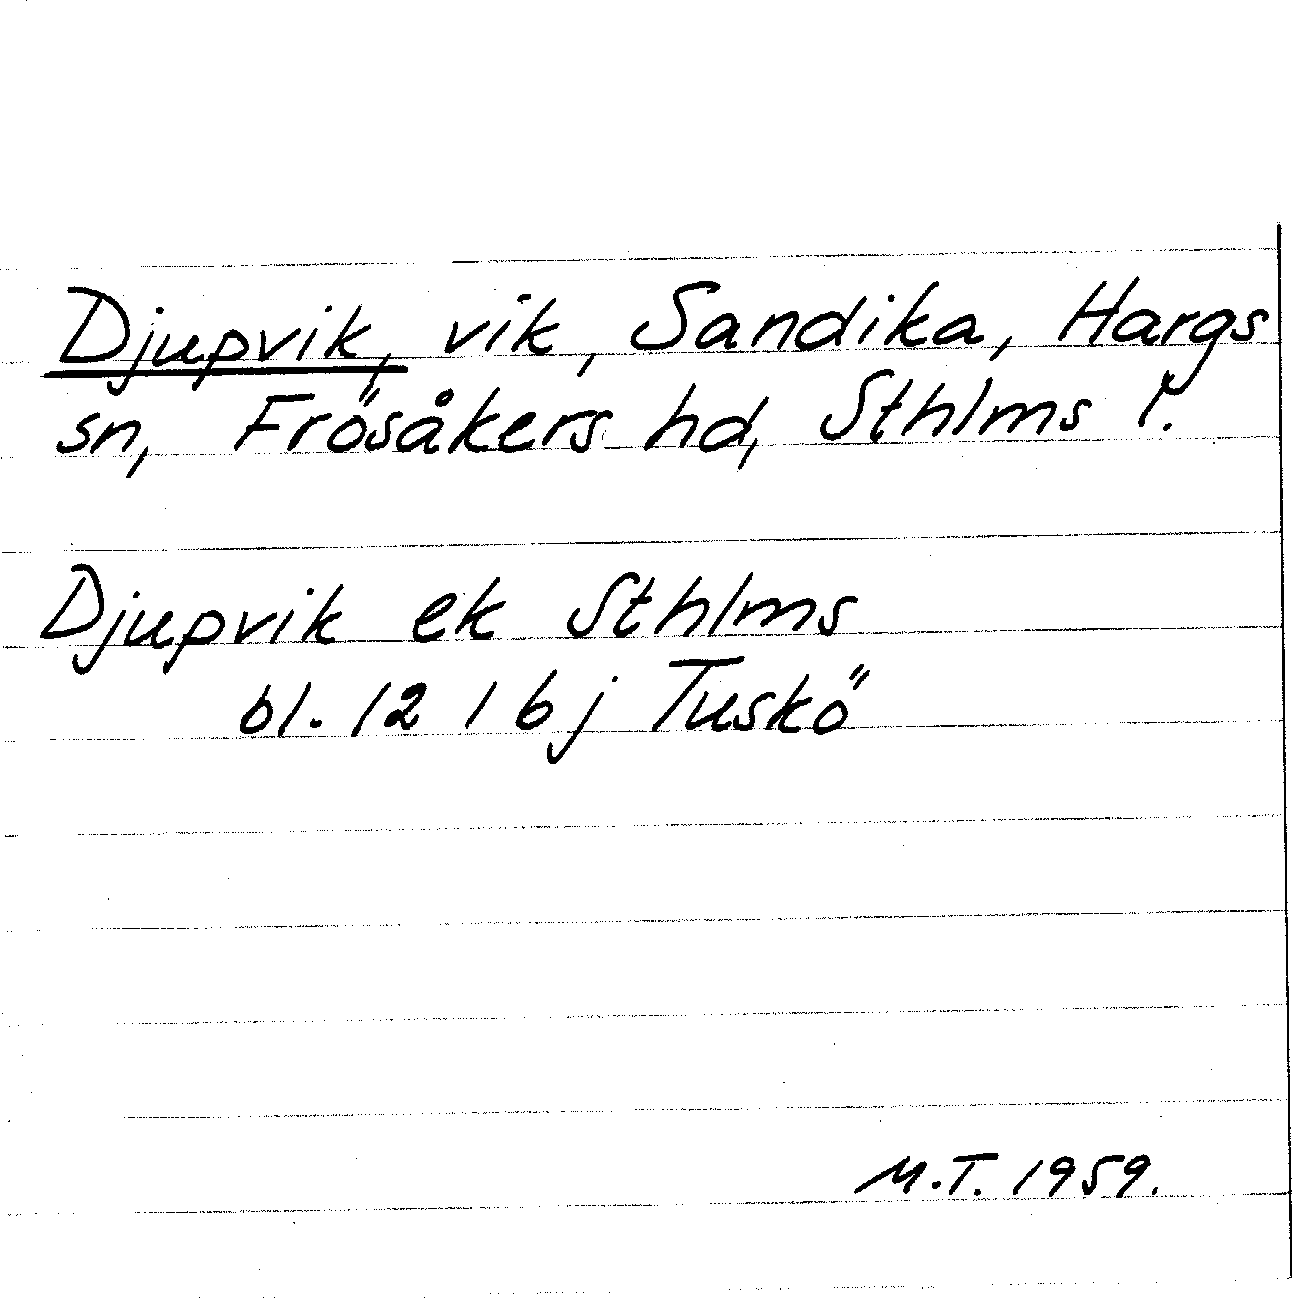 Djupvik, vik, Sandika, Hargs
sn, Frösåkers hd, Sthlms l.
Djupvik ek Sthlms
bl. 12 I 6 j Tuskö
M.T. 1959.